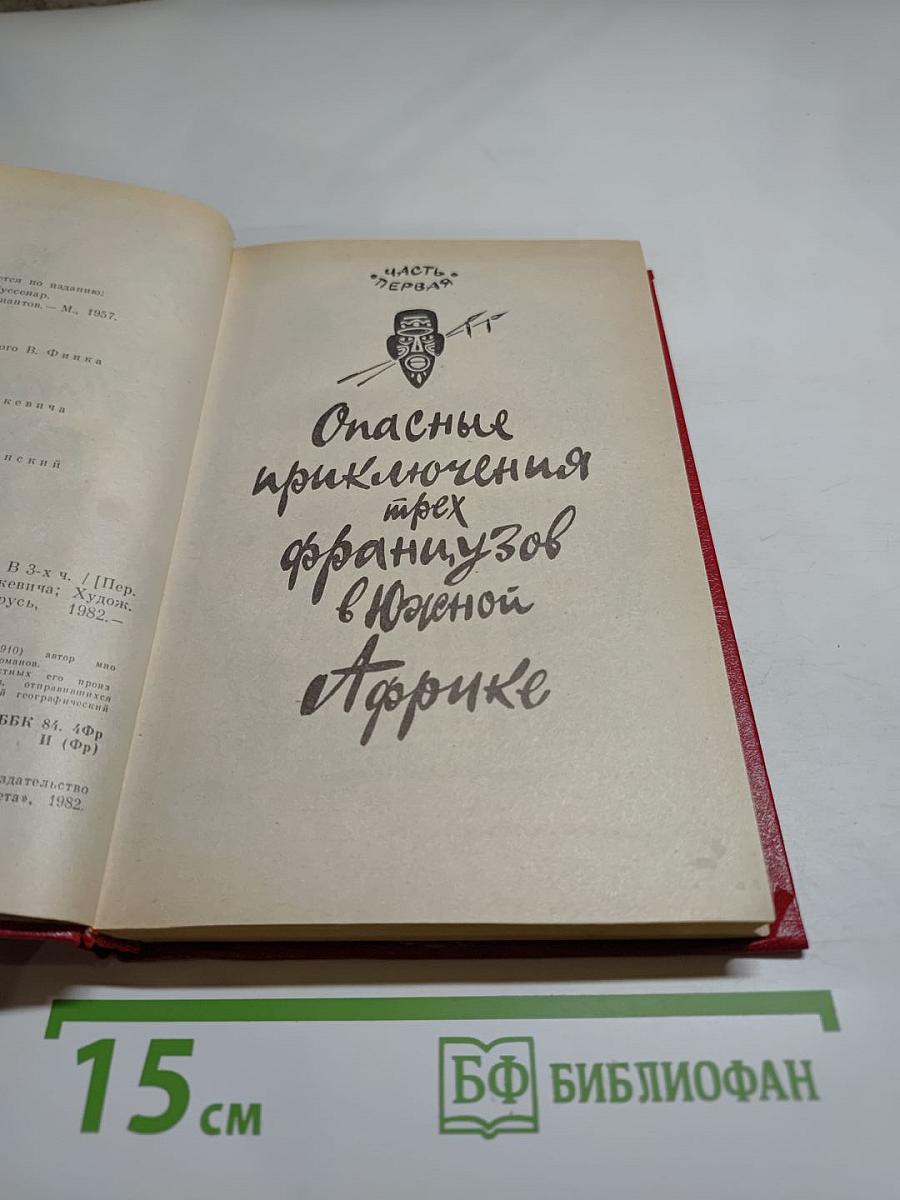 ется по изданию:
уссенар.
иантов. — М., 1957.
ого В. Финка
кевича
нский
В 3-х ч. / [Пер.
кевича; Худож.
русь, 1982.—
910) автор мно
романов.
стных его произ
отправившихся
й географический
ББК 84. 4Фр
И (Фр)
здательство
ета», 1982.
ЧАСТЬ
ПЕРВАЯ
Опасные
приключения
трех
французов
в Южной
Африке
15 см
БФ БИБЛИОФАН